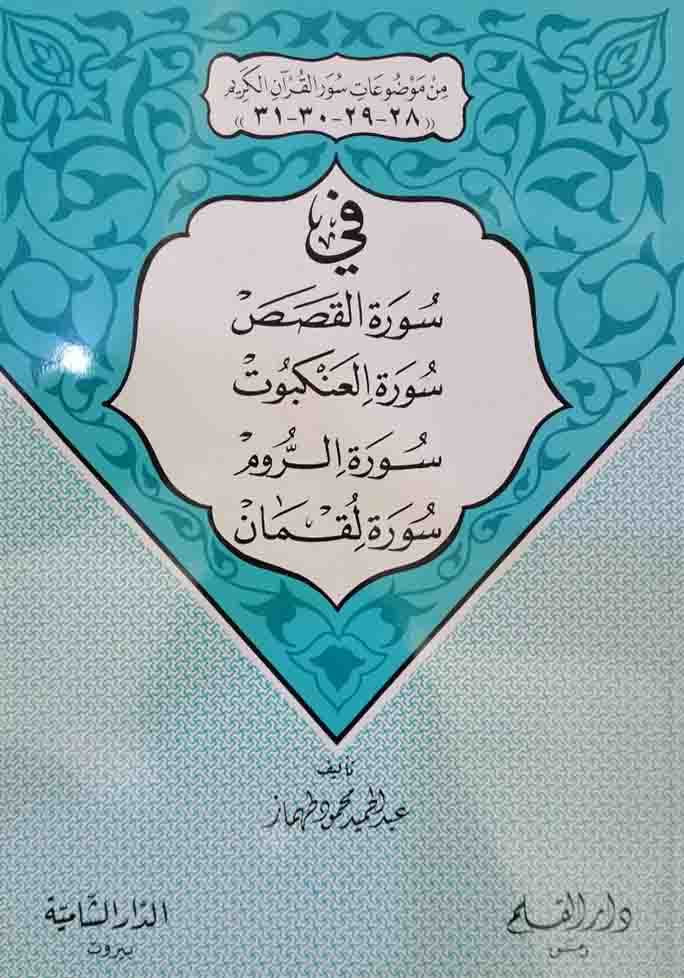 مِنْ مَوْضُوعَاتِ سُوَرِ القُرْآنِ الكَرِيمِ
((٢٨-٢٩-٣٠-٣١))
في
سُورَةِ القَصَصْ
سُورَةِ العَنْكبُوتْ
سُورَةِ الرُّومْ
سُورَةِ لُقْمَانْ
تأليف
عبد الحميد محمود طهماز
دار القلم
دمشق
الدّار الشّاميّة
بيروت